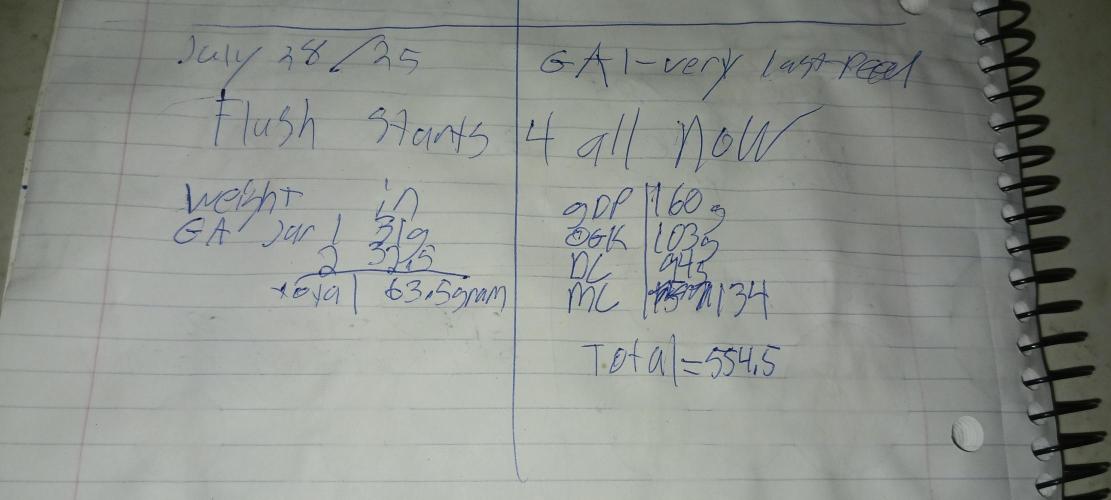 July 28/25
GA1-very last feed
Flush starts 4 all now
Weight in
GA Jar 1 31g
2 32.5
total 63.5gram
gDP 160g
OGK 103g
DC 94g
MC 134
Total=554.5